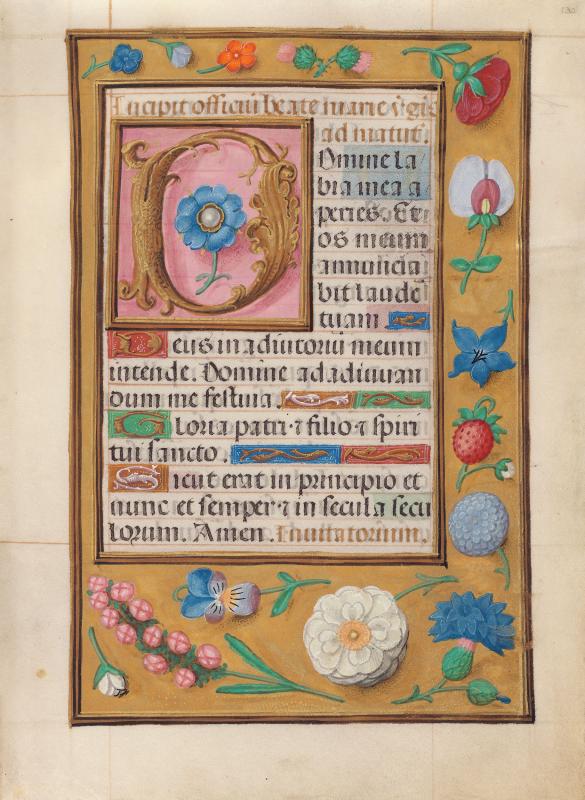 Incipit officiū beate marie v̄gīs
ad matut̄.
Domine la
bia mea a
peries. Et
os meum
annuncia
bit laudē
tuam
Deus in adiutoriū meum
intende. Domine ad adiuuan
dum me festina.
Gloria patri ⁊ filio ⁊ spiri
tui sancto.
Sicut erat in principio et
nunc et semper ⁊ in secula secu
lorum. Amen. Inuitatorium.